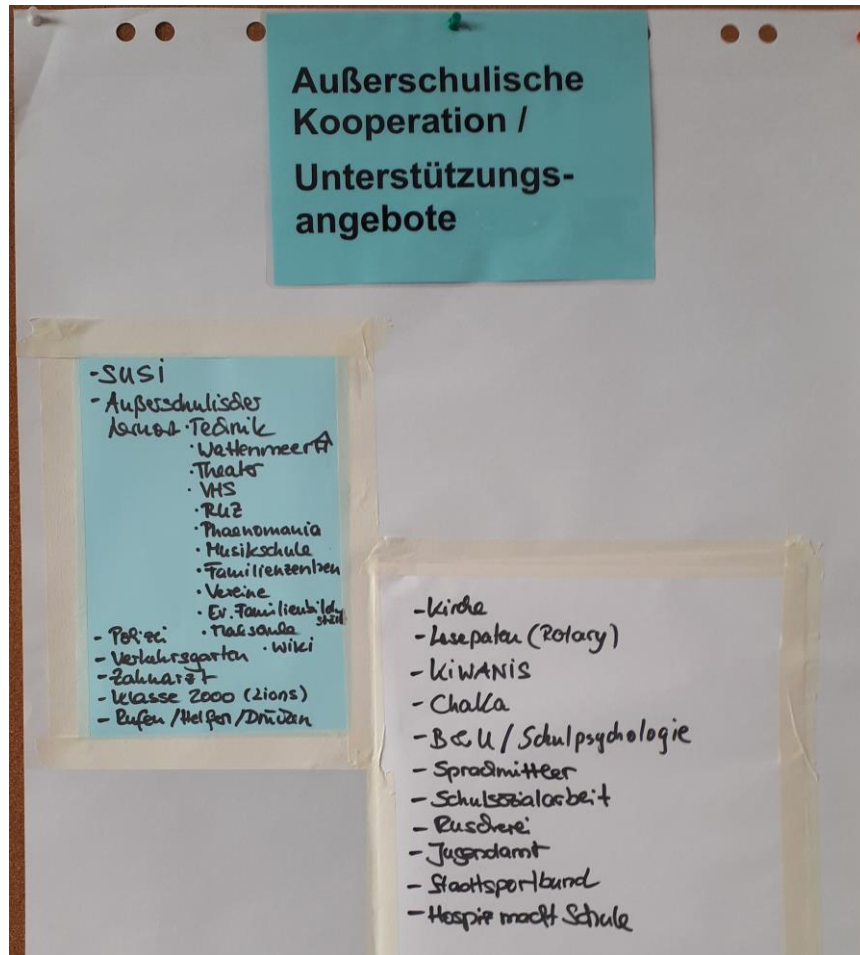 Außerschulische
Kooperation /
Unterstützungs-
angebote
- SUSI
- Außerschulischer
Lernort · Technik
· Wattenmeer
· Theater
· VHS
· RUZ
· Phaenomania
· Musikschule
· Familienzentren
· Vereine
· Ev. Familienbildg
- Polizei
· Wiki
- Verkehrsgarten
- Zahnarzt
- Klasse 2000 (Lions)
- Rufen / Helfen / Drücken
- Kirche
- Lesepaten (Rotary)
- KiWANIS
- Chakka
- B&U / Schulpsychologie
- Sprachmittler
- Schulsozialarbeit
- Ruscherei
- Jugendamt
- Stadtsportbund
- Hospiz macht Schule